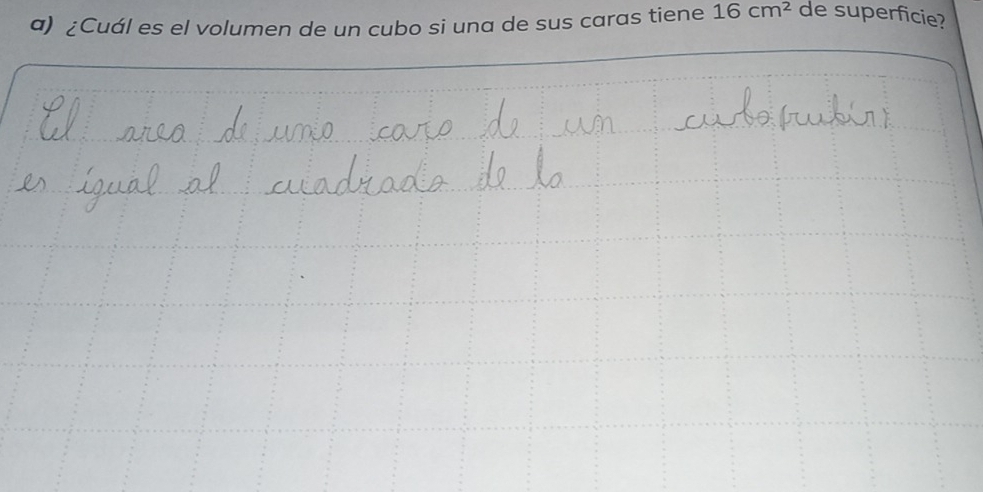 a) ¿Cuál es el volumen de un cubo si una de sus caras tiene 16 cm² de superficie?
El area de una cara de un
es igual al cuadrado de la